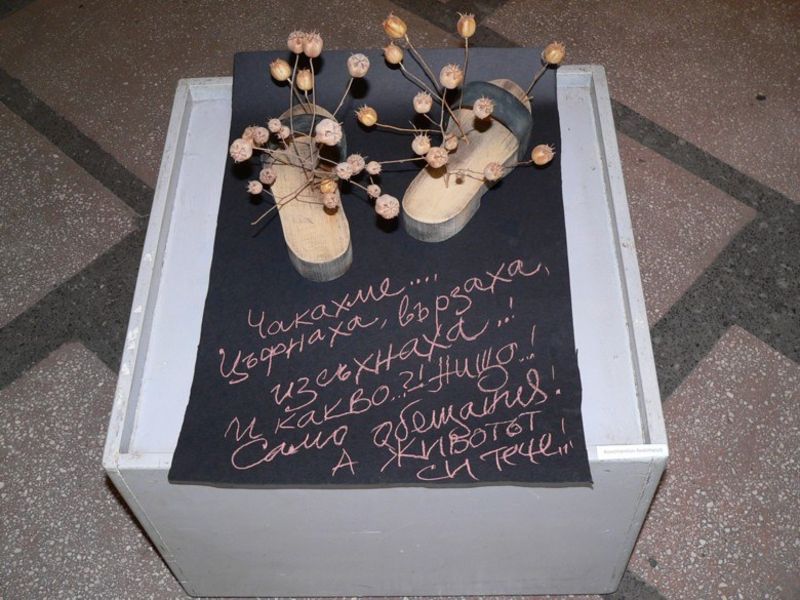 Чакахме....
Цъфнаха, вързаха,
изсъхнаха...!
и какво..?! Нищо..!
Само обещания!
А животът
си тече...!